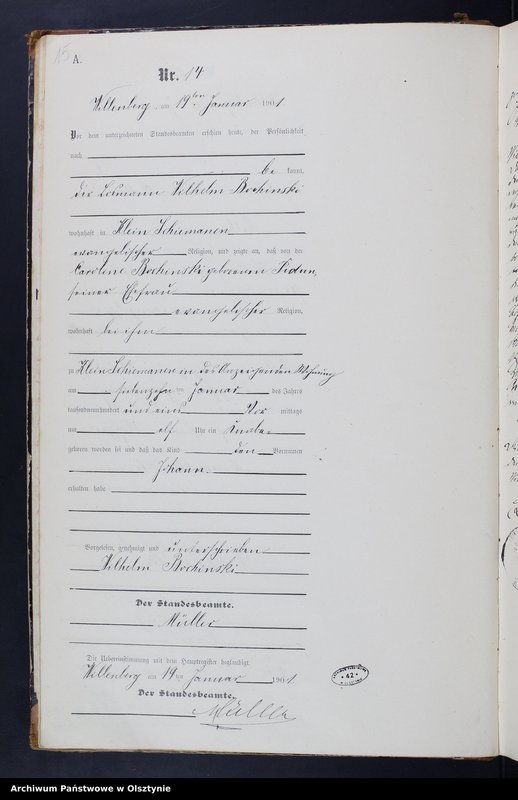 15
A.
Nr. 14
Willenberg, am 19ten Januar 1901.
Vor dem unterzeichneten Standesbeamten erschien heute, der Persönlichkeit
nach
be kannt,
der Wilhelm Bochinski
wohnhaft in Klein Schiemanen
evangelischer Religion, und zeigte an, daß von der
Caroline Bochinski geborenen Fidun,
seiner Ehefrau
evangelischer Religion,
wohnhaft bei ihm
zu Klein Schiemanen in des Anzeigenden Wohnung
am siebenzehn ten Januar des Jahres
tausendneunhundert und eins Vor mittags
um elf Uhr ein Knabe
geboren worden sei und daß das Kind den Vornamen
Johann
erhalten habe
Vorgelesen, genehmigt und unterschrieben
Wilhelm Bochinski
Der Standesbeamte.
Müller
Die Uebereinstimmung mit dem Hauptregister beglaubigt
Willenberg, am 19ten Januar 1901
Der Standesbeamte.
Müller
42
Archiwum Państwowe w Olsztynie